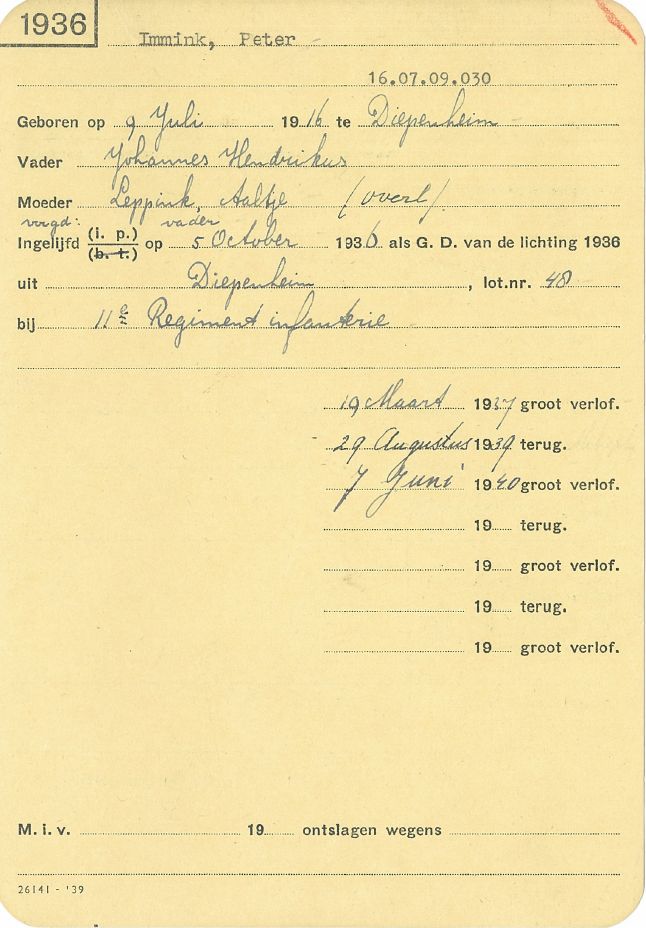 1936
Immink, Peter -
16.07.09.030
Geboren op 9 Juli 1916 te Diepenheim
Vader Johannes Hendrikus
Moeder Leppink, Aaltje (overl)
voogd: vader
Ingelijfd (i. p.) (b. t.) op 5 October 1936 als G. D. van de lichting 1936
uit Diepenheim, lot.nr. 48
bij 11e Regiment infanterie
19 Maart 1937 groot verlof.
29 Augustus 1939 terug.
7 Juni 1940 groot verlof.
19 terug.
19 groot verlof.
19 terug.
19 groot verlof.
M. i. v. 19 ontslagen wegens
26141 - '39